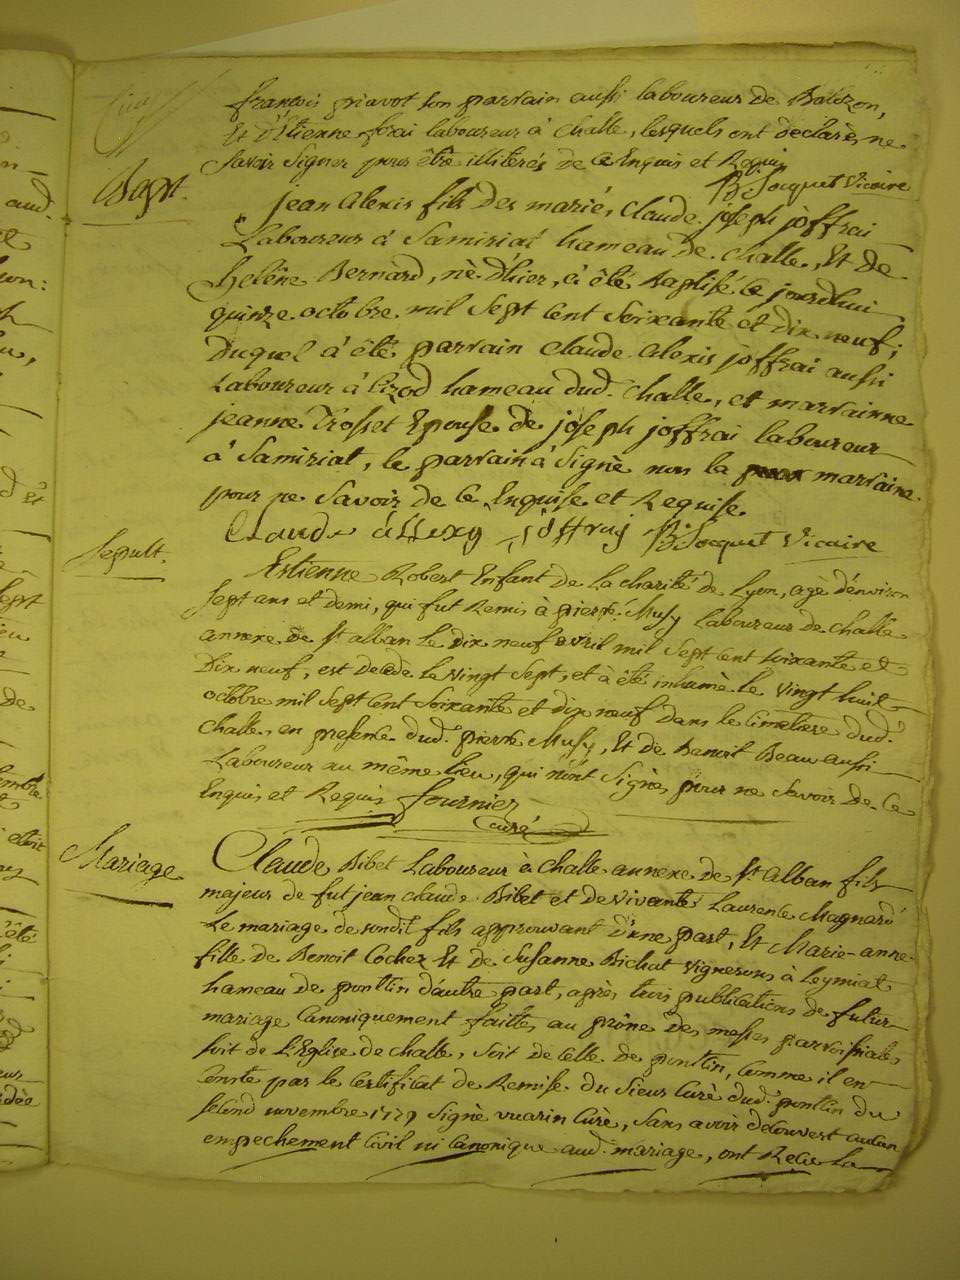 françois priavot son parrain aussi laboureur de Balozon,
Et d'Etienne frai laboureur à Challe, lesquels ont déclarés ne
Savoir Signer pour être illiterés de ce Enquis et Requis
B: Jocquet Vicaire
Bapt.
jean Alexis fils des mariés, Claude joseph joffrai
Laboureur à Samiriat hameau de challe, Et de
helêne Bernard, nè d'hier, à été Baptisé ce jourdhui
quinze octobre mil Sept Cent Soixante et dix neuf;
Duquel à été parrain Claude Alexis joffrai aussi
Laboureur à hameau dud. Challe, et marrainne
jeanne Trosset Epouse de joseph joffrai laboureur
à Samiriat, le parrain à Signè non la marraine
pour ne Savoir de ce Enquise et Requise.
Claude àllexy joffray B: Jocquet Vicaire
Sepult.
Estienne Robert Enfant de la charité de Lyon, agè d'environ
Sept ans et demi, qui fut Remis à pierre Musy laboureur de challe
annexe de St alban Le dix neuf avril mil Sept Cent soixante et
Dix neuf, est decedé le vingt Sept, et à été inhumè le vingt huit
octobre mil Sept Cent Soixante et dix neuf Dans le Cimetiere dud.
Challe, en presence dud. pierre Musy, Et de Benoit Beau aussi
Laboureur au même lieu, qui n'ont Signès pour ne Savoir de ce
Enquis et Requis fournier
Curé
Mariage
Claude Bibet Laboureur à Challe annexe de St Alban fils
majeur de fut jean claude Bibet et de vivante Laurente Magnard
Le mariage de sondit fils approuvant D'une part, Et Marie-anne
fille de Benoit Cochet Et de Susanne Bichat Vignerons à Leymiat
hameau de pontin d'autre part, après trois publications de futur
mariage Canoniquement faites au prône des messes parroissiales
soit de L'Eglise de challe, soit de celle de pontin, Comme il en
Conste par le Certificat de Remise du Sieur Curè dud. pontin du
second novembre 1779 Signè vuarin Curè, Sans avoir découvert aucun
empechement Civil ni Canonique aud. mariage, ont Reçu la